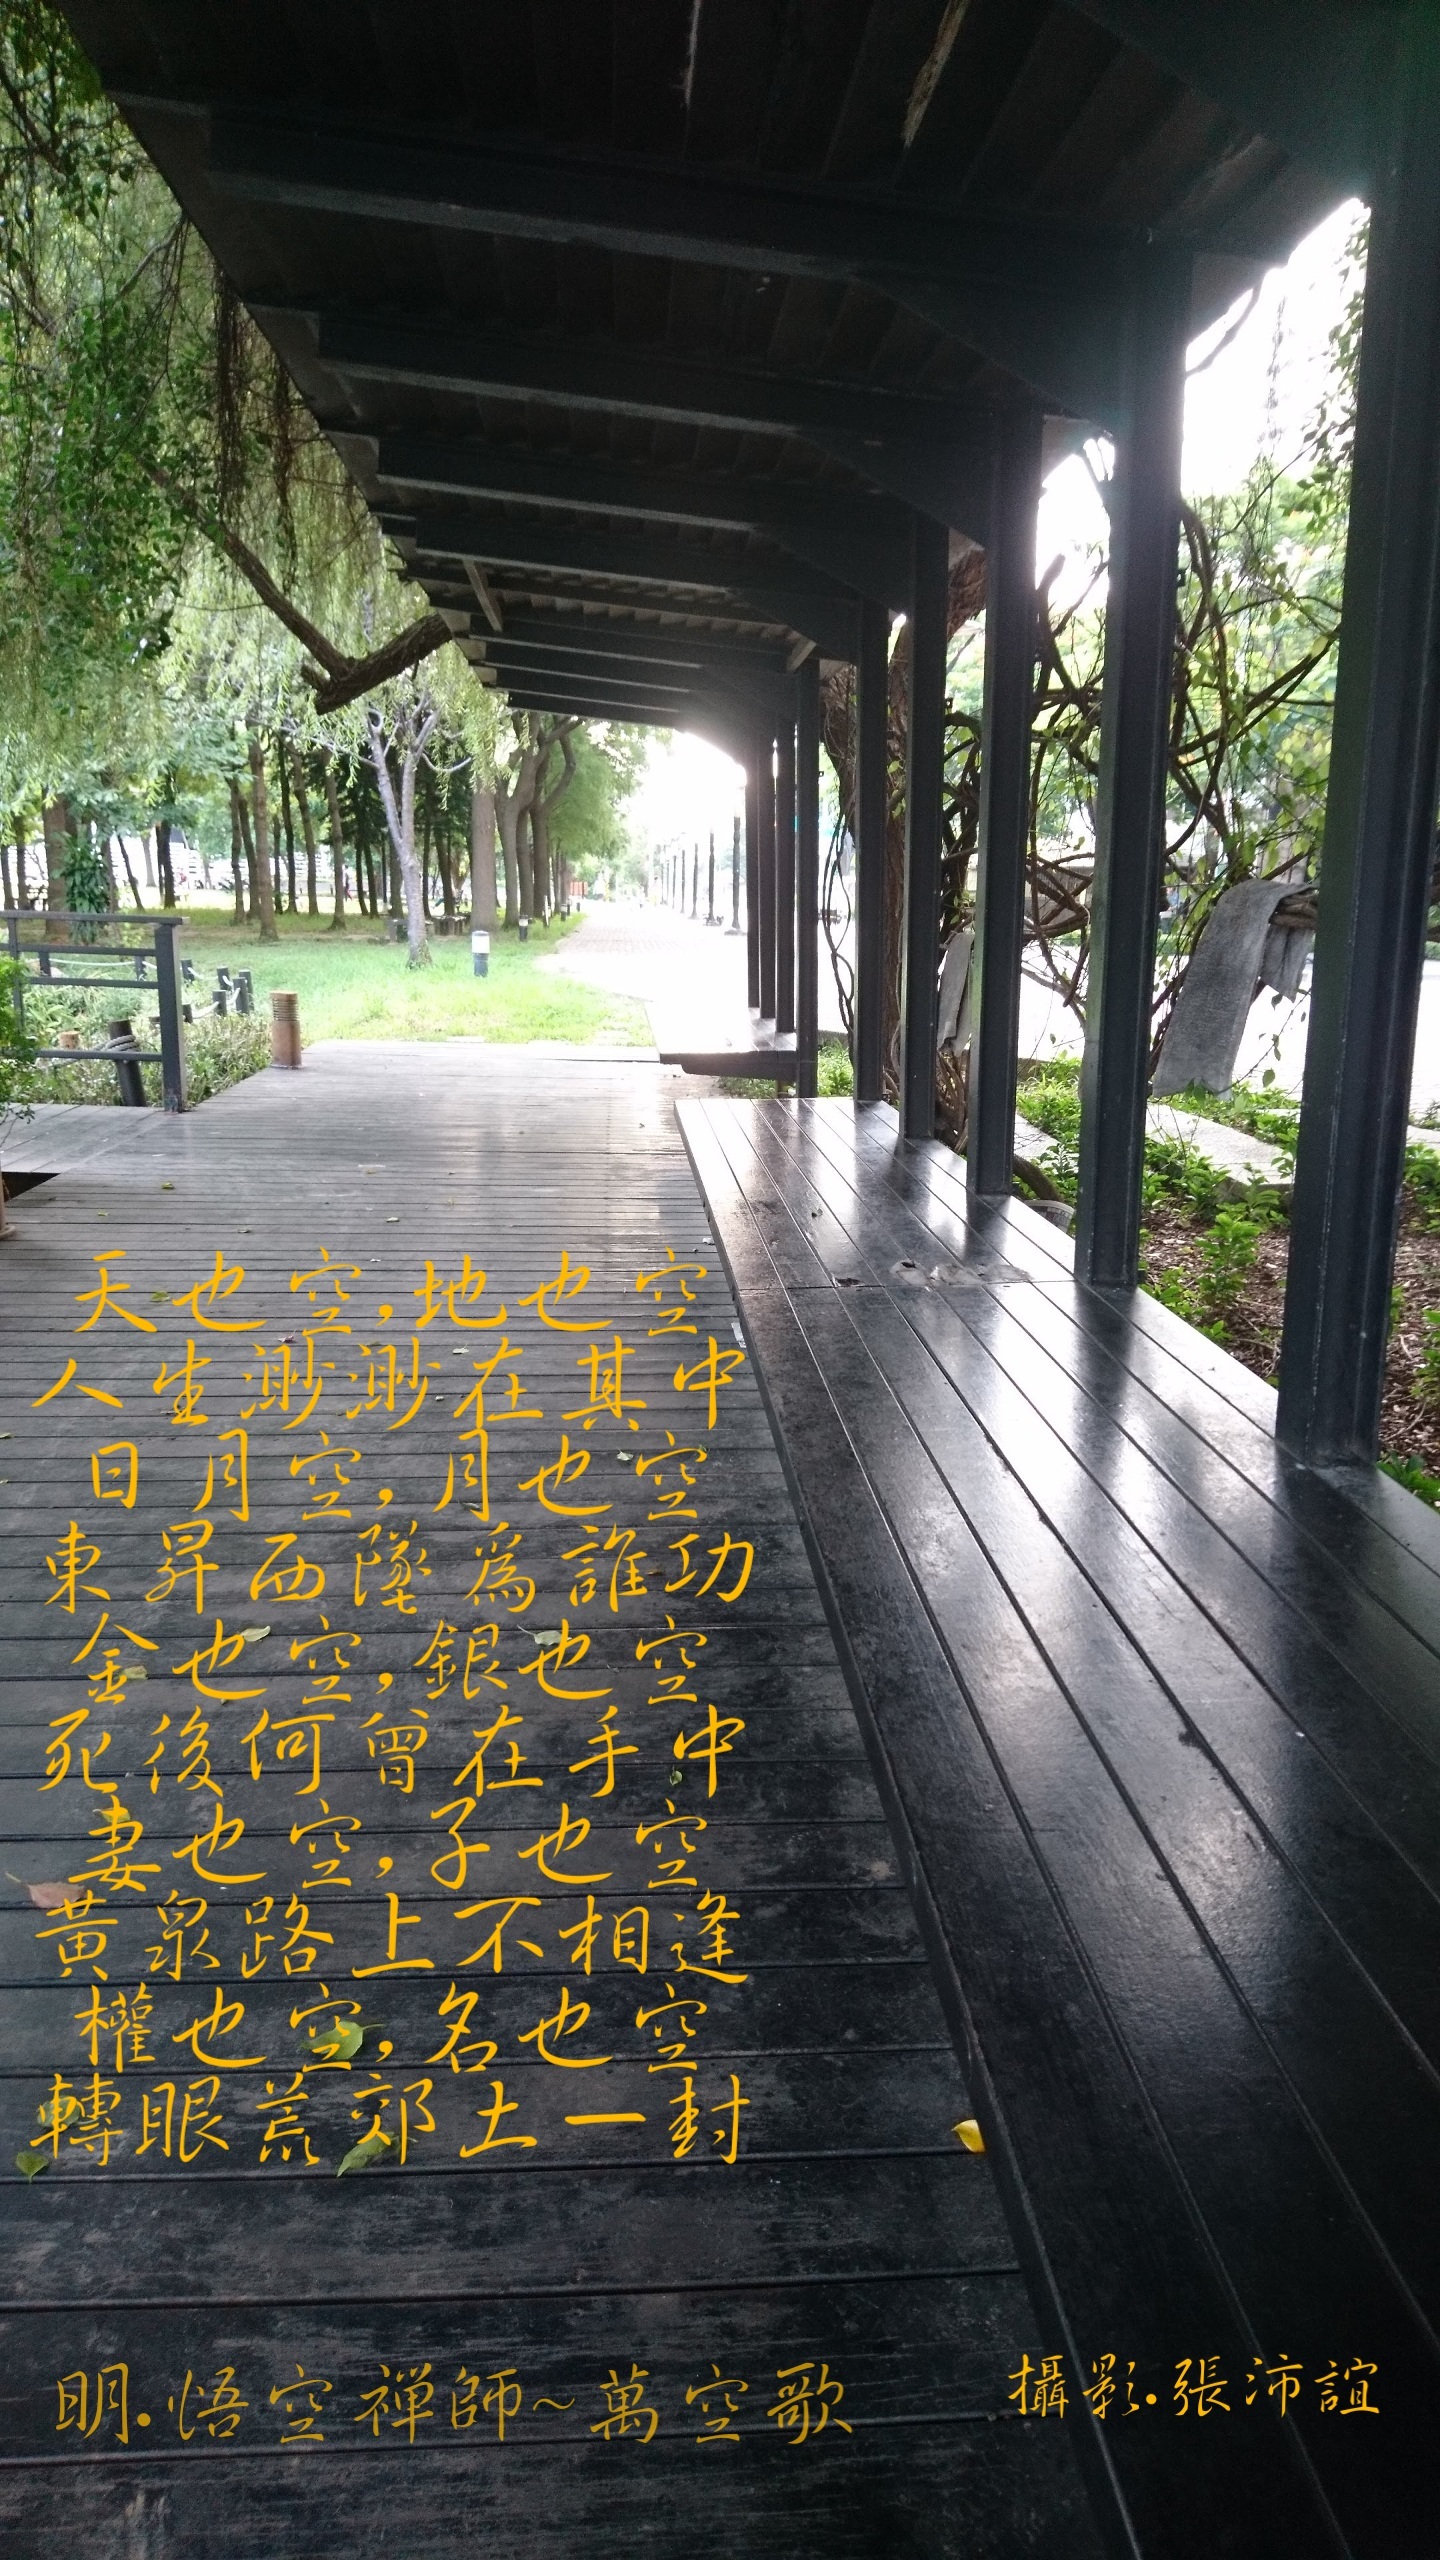 天也空,地也空
人生渺渺在其中
日月空,月也空
東昇西墜為誰功
金也空,銀也空
死後何曾在手中
妻也空,子也空
黃泉路上不相逢
權也空,名也空
轉眼荒郊土一封
明.悟空禪師~萬空歌
攝影.張沛誼